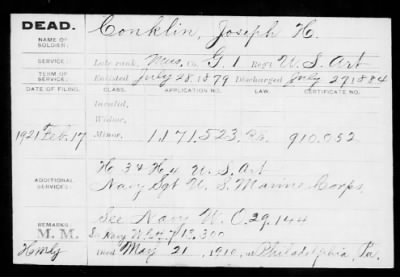 DEAD.
Conklin, Joseph H.
NAME OF SOLDIER:
SERVICE: Late rank, Mus, Co. G. 1 Reg't U. S. Art
TERM OF SERVICE: Enlisted July 28, 1879 Discharged July 27, 1884
DATE OF FILING. CLASS. APPLICATION NO. LAW. CERTIFICATE NO.
Invalid,
Widow,
1921 Feb. 17 Minor, 1.171.523. 910.052
ADDITIONAL SERVICES:
H. 3 & H. 4 U. S. Art
Navy Sgt U. S. Marine Corps
REMARKS: See Navy W. C. 29.144
M. M. See Navy
Died May 21, 1910, at Philadelphia, Pa.